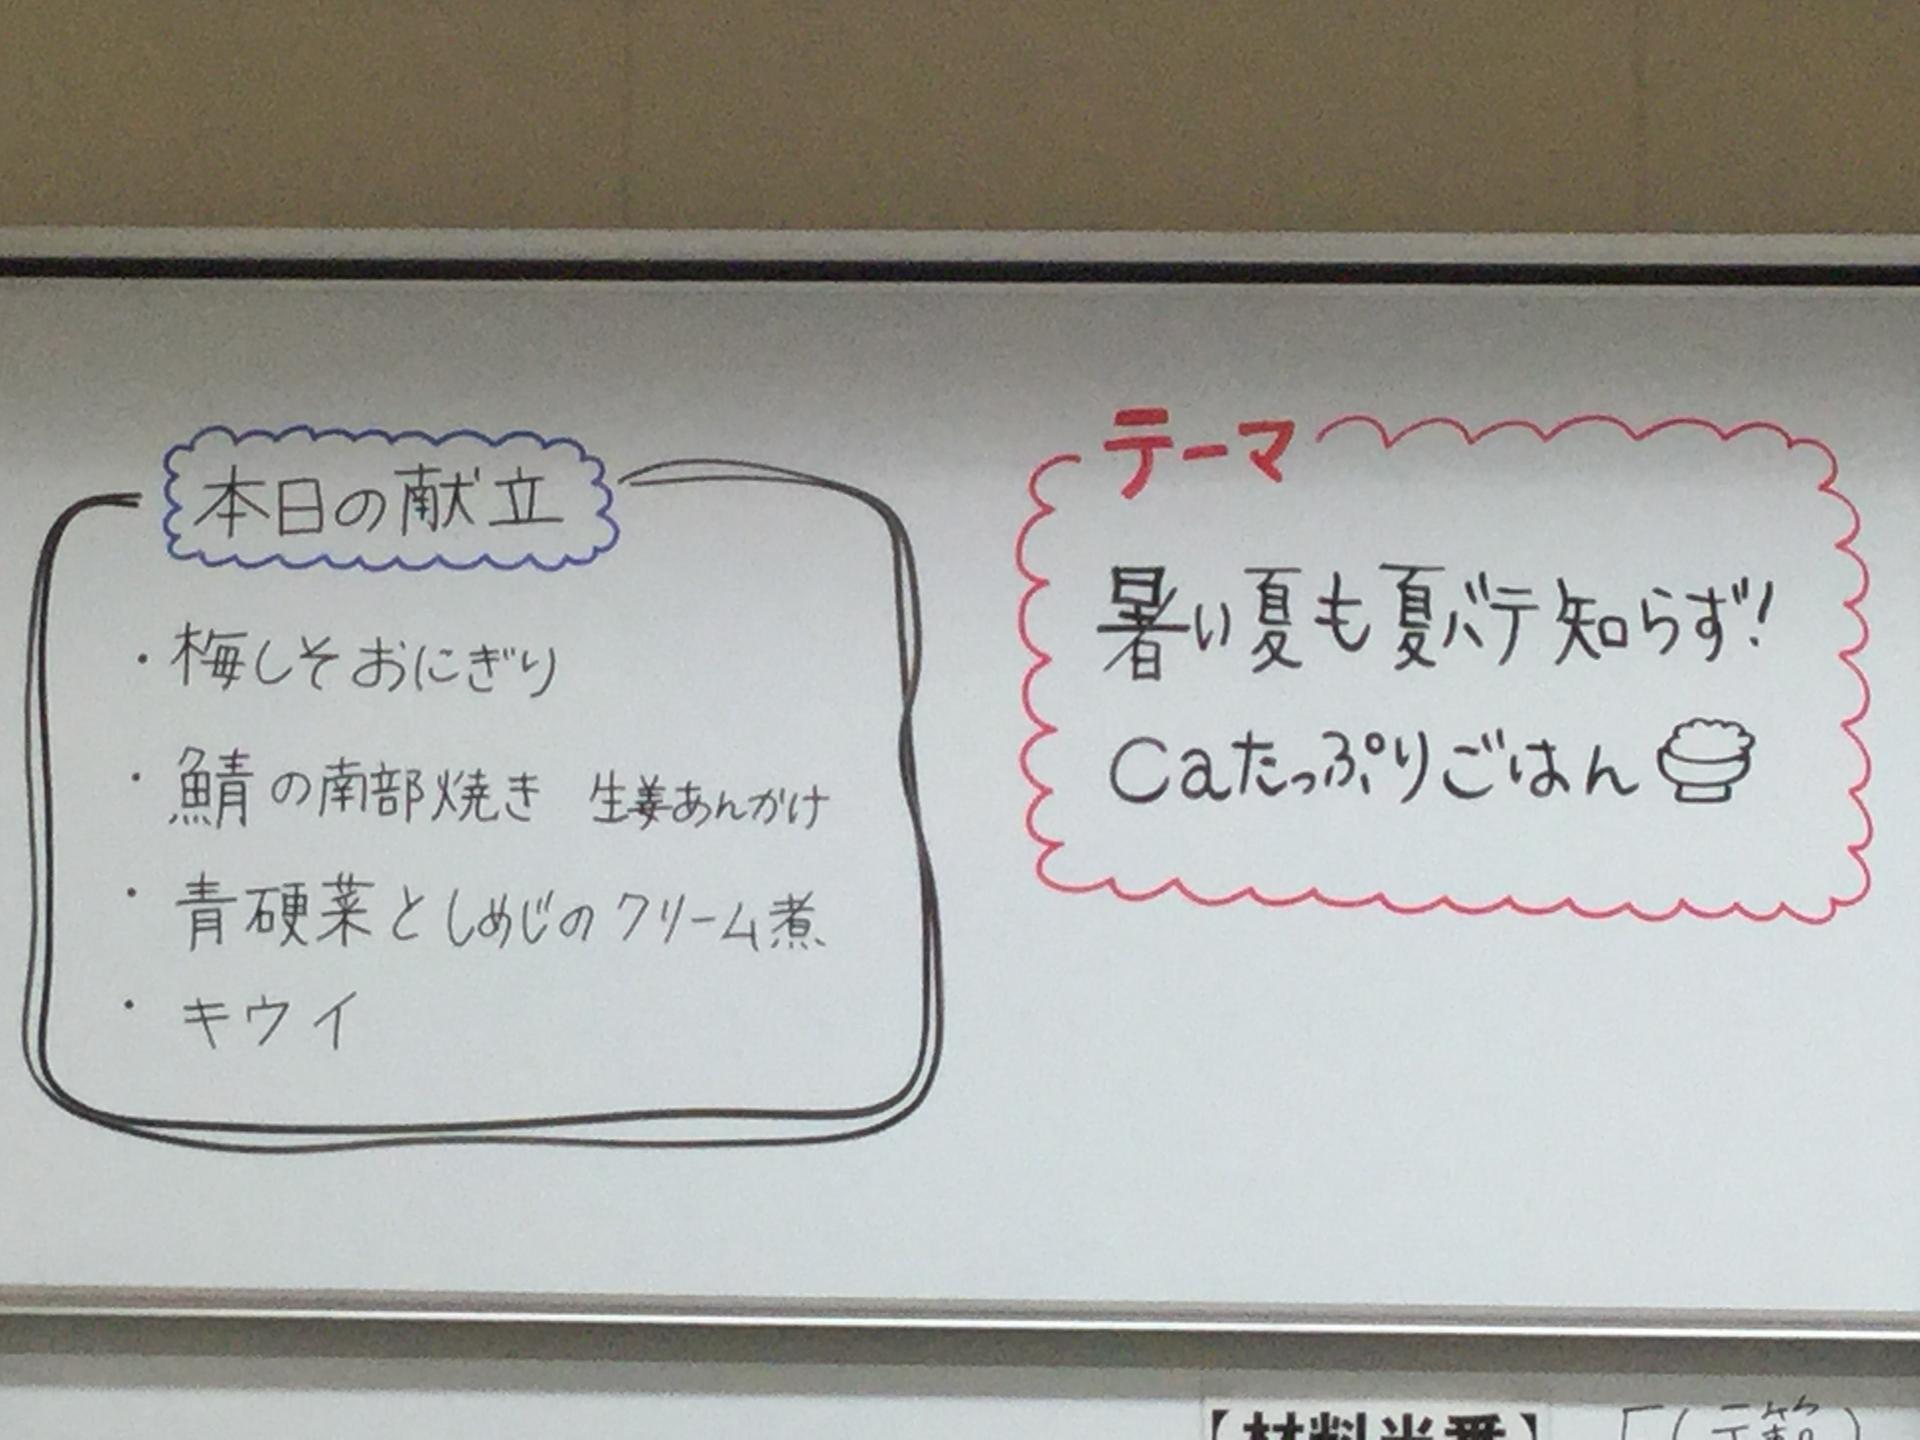 本日の献立
・梅しそおにぎり
・鯖の南部焼き 生姜あんかけ
・青硬菜としめじのクリーム煮
・キウイ
テーマ
暑い夏も夏バテ知らず!
Caたっぷりごはん
【材料当番】